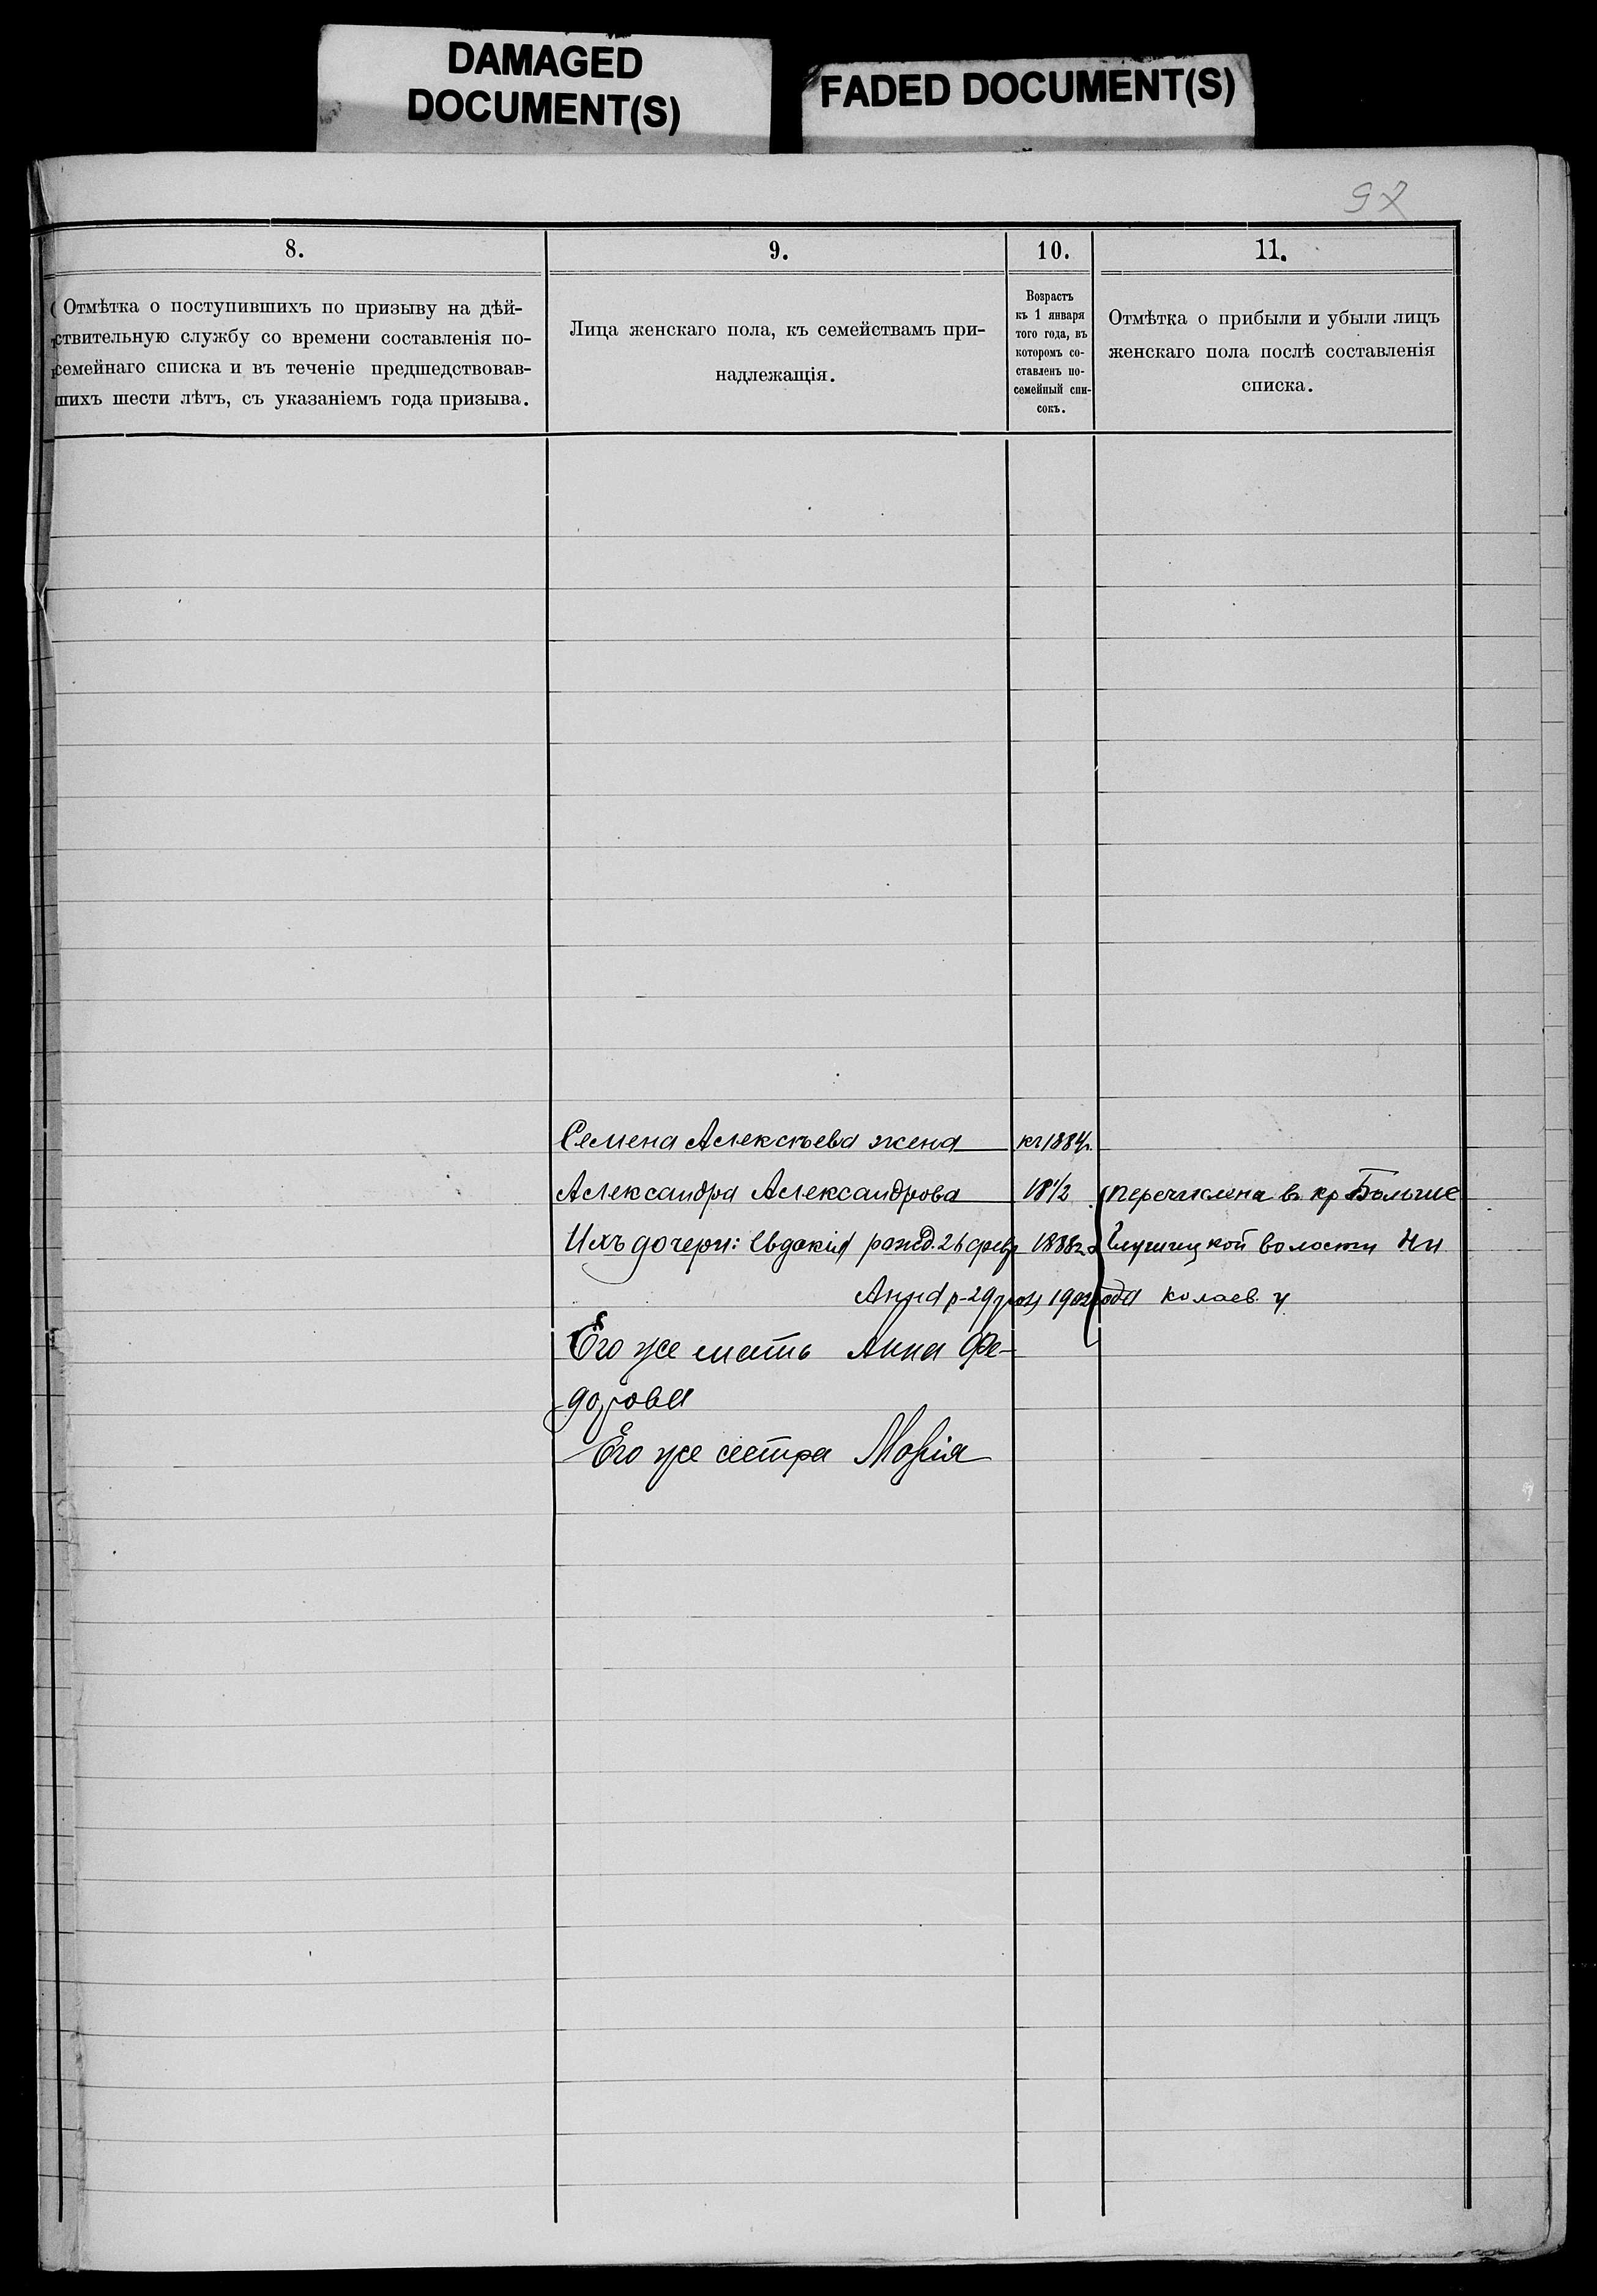 DAMAGED
DOCUMENT(S)
FADED DOCUMENT(S)
97
8.
Отмѣтка о поступившихъ по призыву на дѣй-
ствительную службу со времени составленія по-
семейнаго списка и въ теченіе предшедствовав-
шихъ шести лѣтъ, съ указаніемъ года призыва.
9.
Лица женскаго пола, къ семействамъ при-
надлежащія.
10.
Возрастъ
къ 1 января
того года, въ
которомъ со-
ставленъ по-
семейный спи-
сокъ.
11.
Отмѣтка о прибыли и убыли лицъ
женскаго пола послѣ составленія
списка.
Семена Алексѣева жена къ 1884г.
Александра Александрова 18 1/2 перечислена в кр Больше
Ихъ дочери: Евдокія рожд. 26 февр 1888г. Глушицкой волости Ни
Анна р-29 1902 года колаев. у
Его же мать Анна Фе-
дорова
Его же сестра Марія